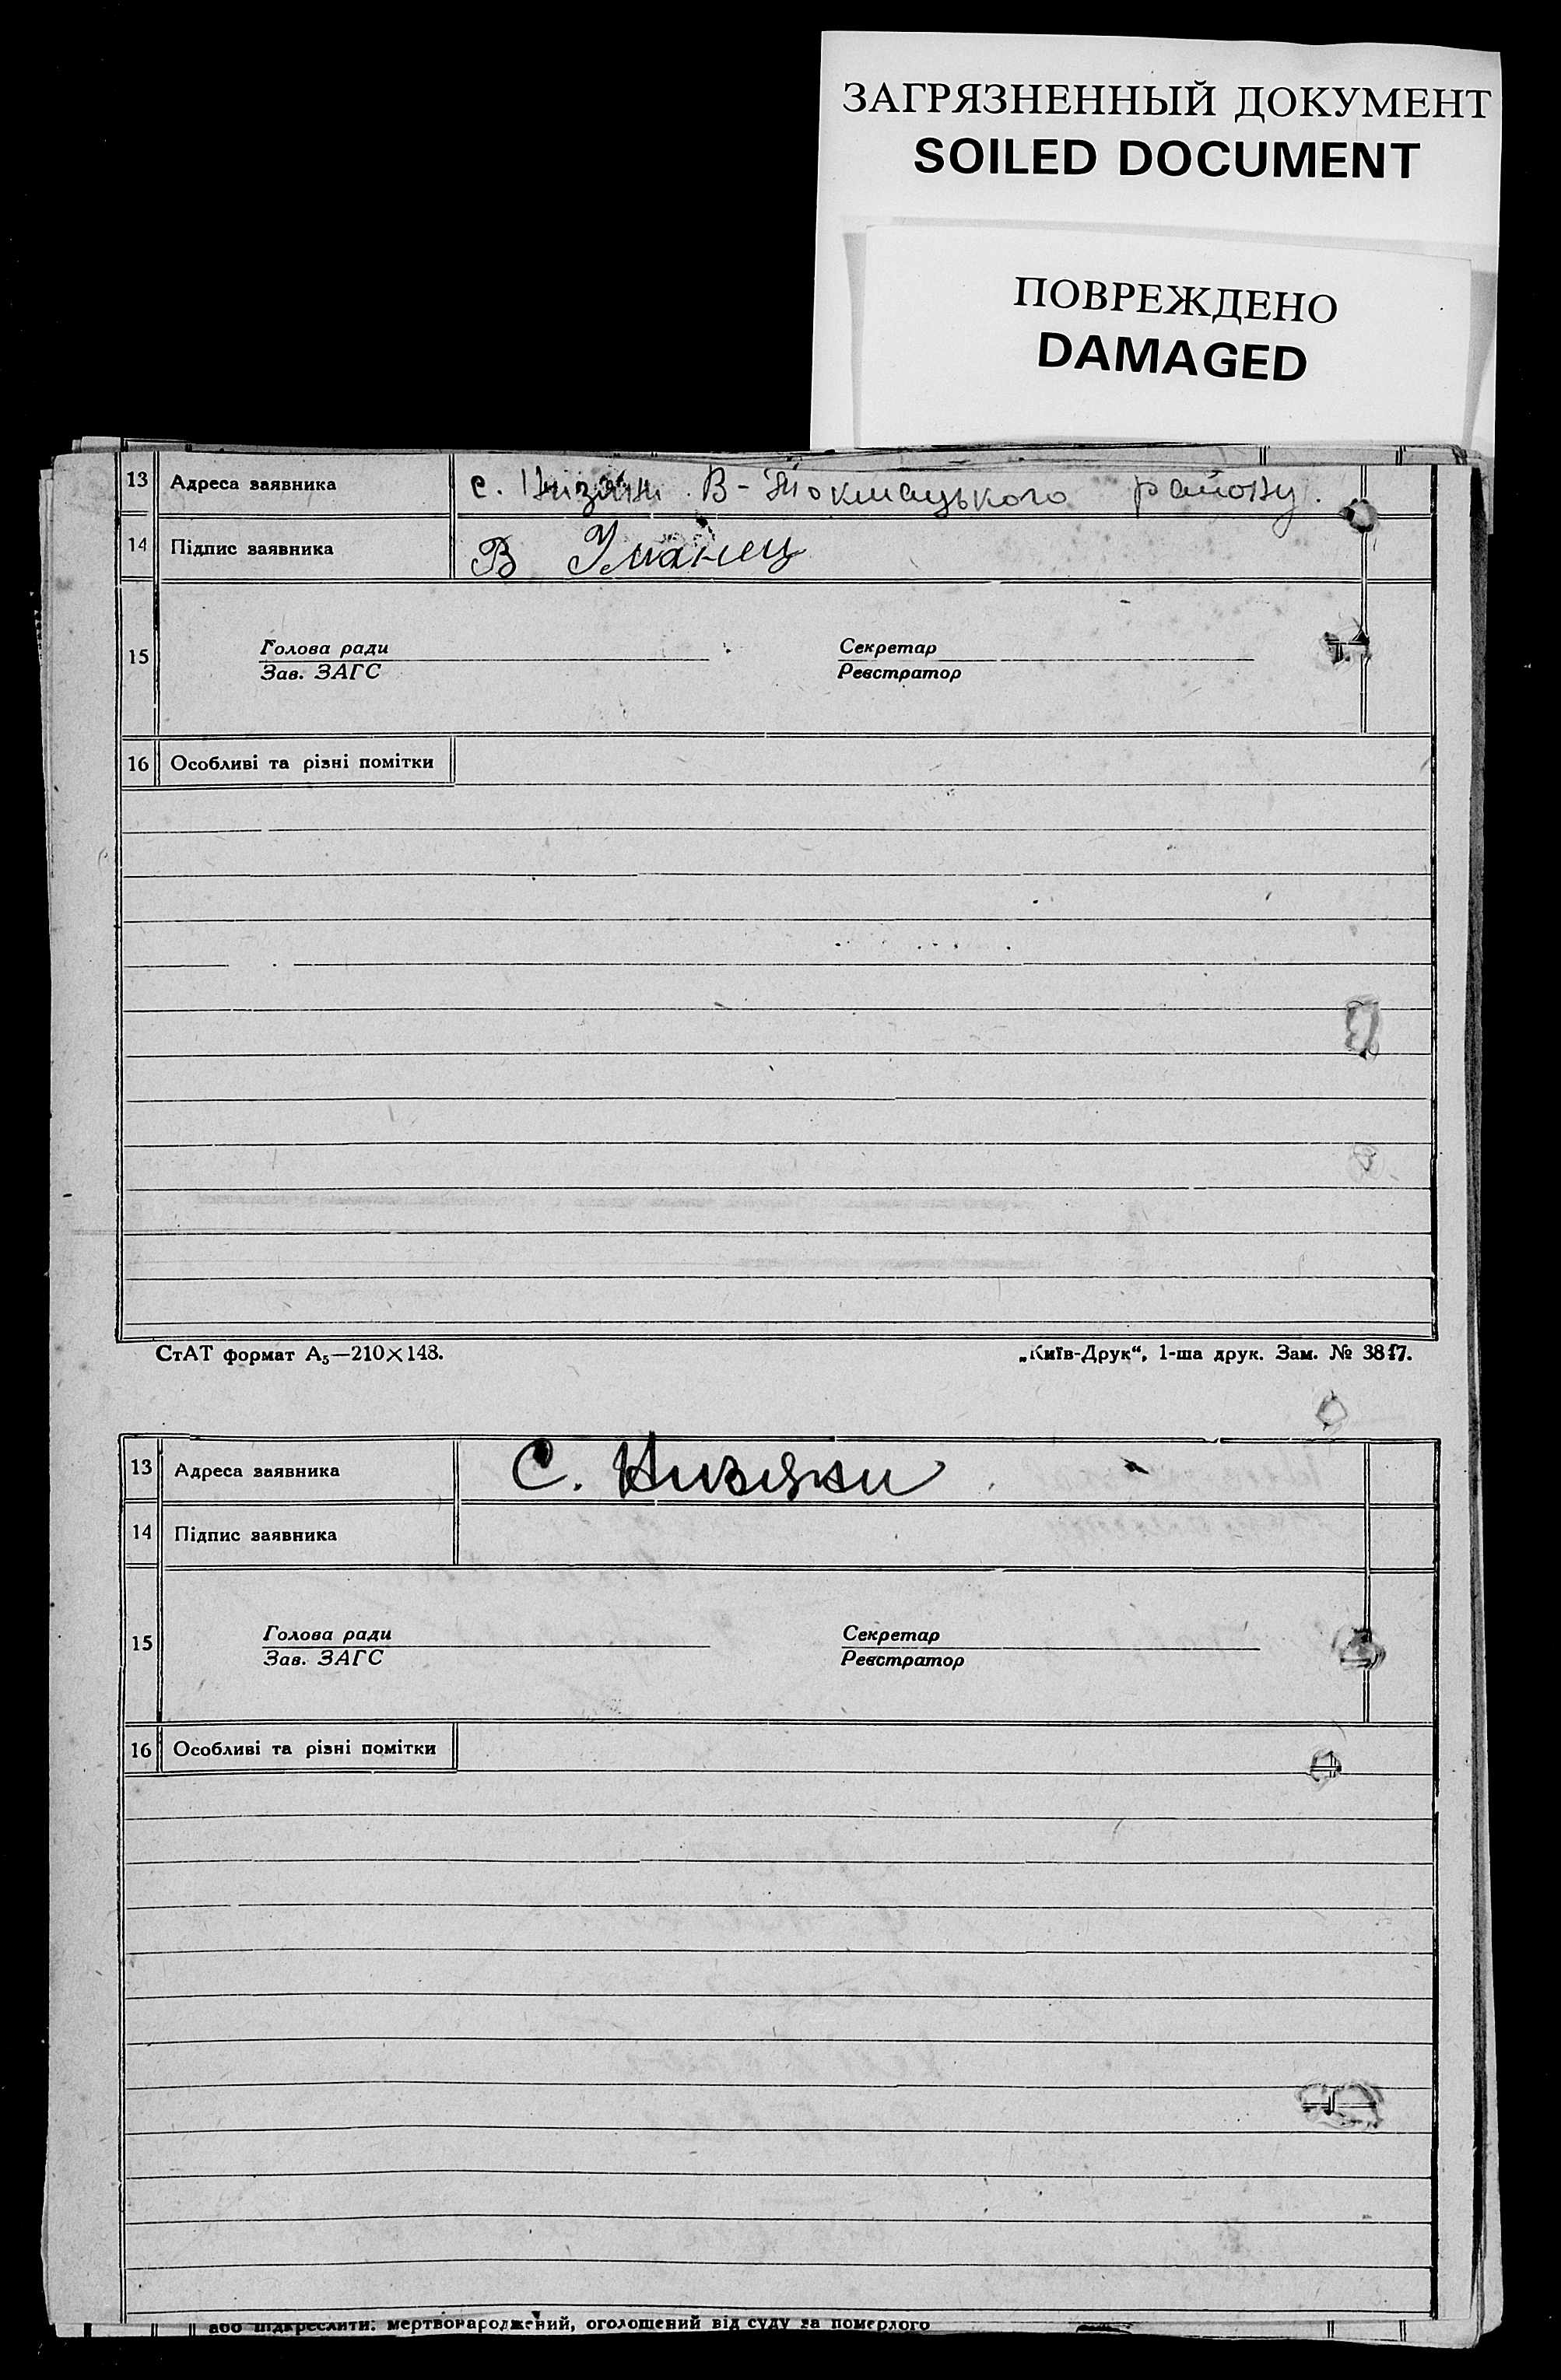 ЗАГРЯЗНЕННЫЙ ДОКУМЕНТ
SOILED DOCUMENT
ПОВРЕЖДЕНО
DAMAGED
13 Адреса заявника с. Низяни В-Токмацького району.
14 Підпис заявника В Уманец
15 Голова ради Секретар
Зав. ЗАГС Реєстратор
16 Особливі та різні помітки
СтАТ формат А₅—210×148. „Київ-Друк“, 1-ша друк. Зам. № 3817.
13 Адреса заявника С. Низяни
14 Підпис заявника
15 Голова ради Секретар
Зав. ЗАГС Реєстратор
16 Особливі та різні помітки
або підкреслити: мертвонароджений, оголошений від суду за померлого